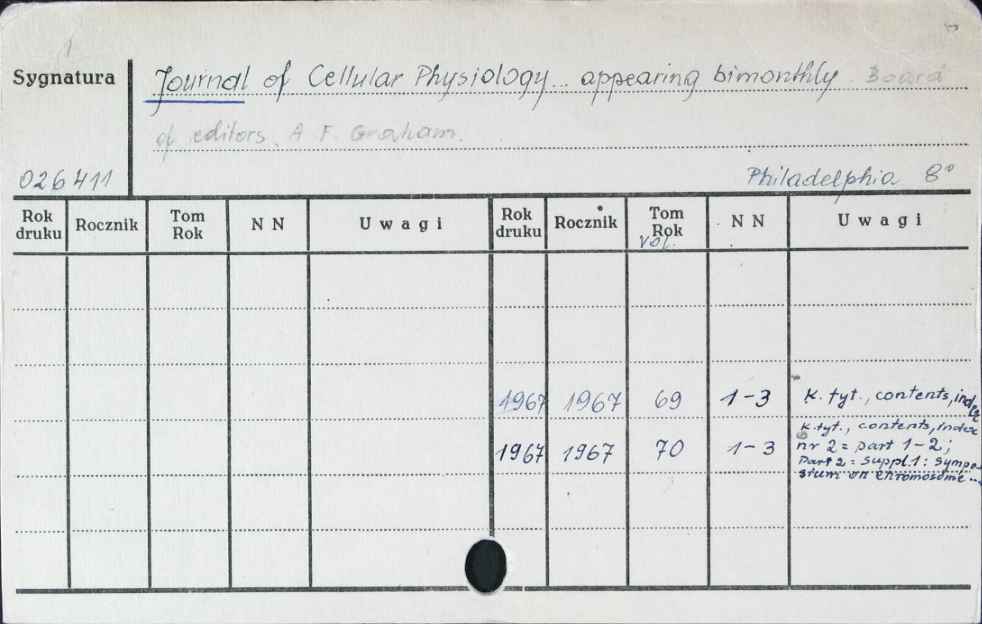 Sygnatura Journal of Cellular Physiology... appearing bimonthly Board
of editors A. F. Graham.
026411 Philadelphia 8°
Rok druku Rocznik Tom Rok NN Uwagi Rok druku Rocznik Tom Rok vol. NN Uwagi
1967 1967 69 1-3 K. tyt., contents, index
1967 1967 70 1-3 K. tyt., contents, index
nr 2 = part 1-2;
Part 2 = suppl. 1: sympo-
sium on chromosome...